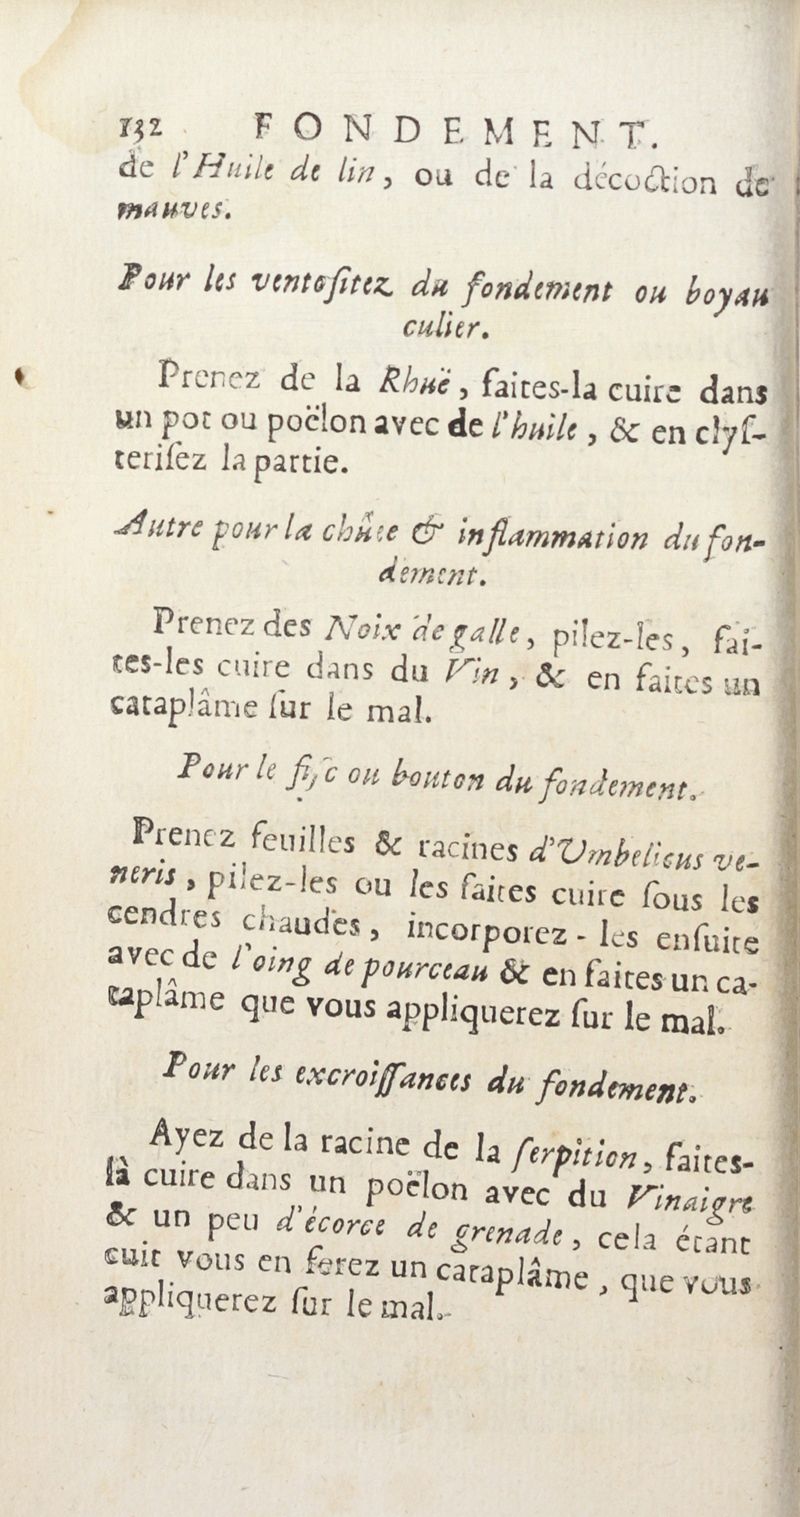 132 FONDEMENT.
de l'Huile de lin, ou de la décoction de
mauves.
Pour les ventositez du fondement ou boyau
culier.
Prenez de la Rhuë, faites-la cuire dans
un pot ou poëlon avec de l'huile, & en clyſ-
teriſez la partie.
Autre pour la chûte & inflammation du fon-
dement.
Prenez des Noix de galle, pilez-les, fai-
tes-les cuire dans du Vin, & en faites un
cataplâme ſur le mal.
Pour le fiſc ou bouton du fondement.
Prenez feuilles & racines d'Vmbelicus ve-
neris, pilez-les ou les faites cuire ſous les
cendres chaudes, incorporez-les enſuite
avec de l'oing de pourceau & en faites un ca-
taplâme que vous appliquerez ſur le mal.
Pour les excroiſſances du fondement.
Ayez de la racine de la ſerpition, faites-
la cuire dans un poëlon avec du Vinaigre
& un peu d'écorce de grenade, cela étant
cuit vous en ferez un cataplâme, que vous
appliquerez ſur le mal.